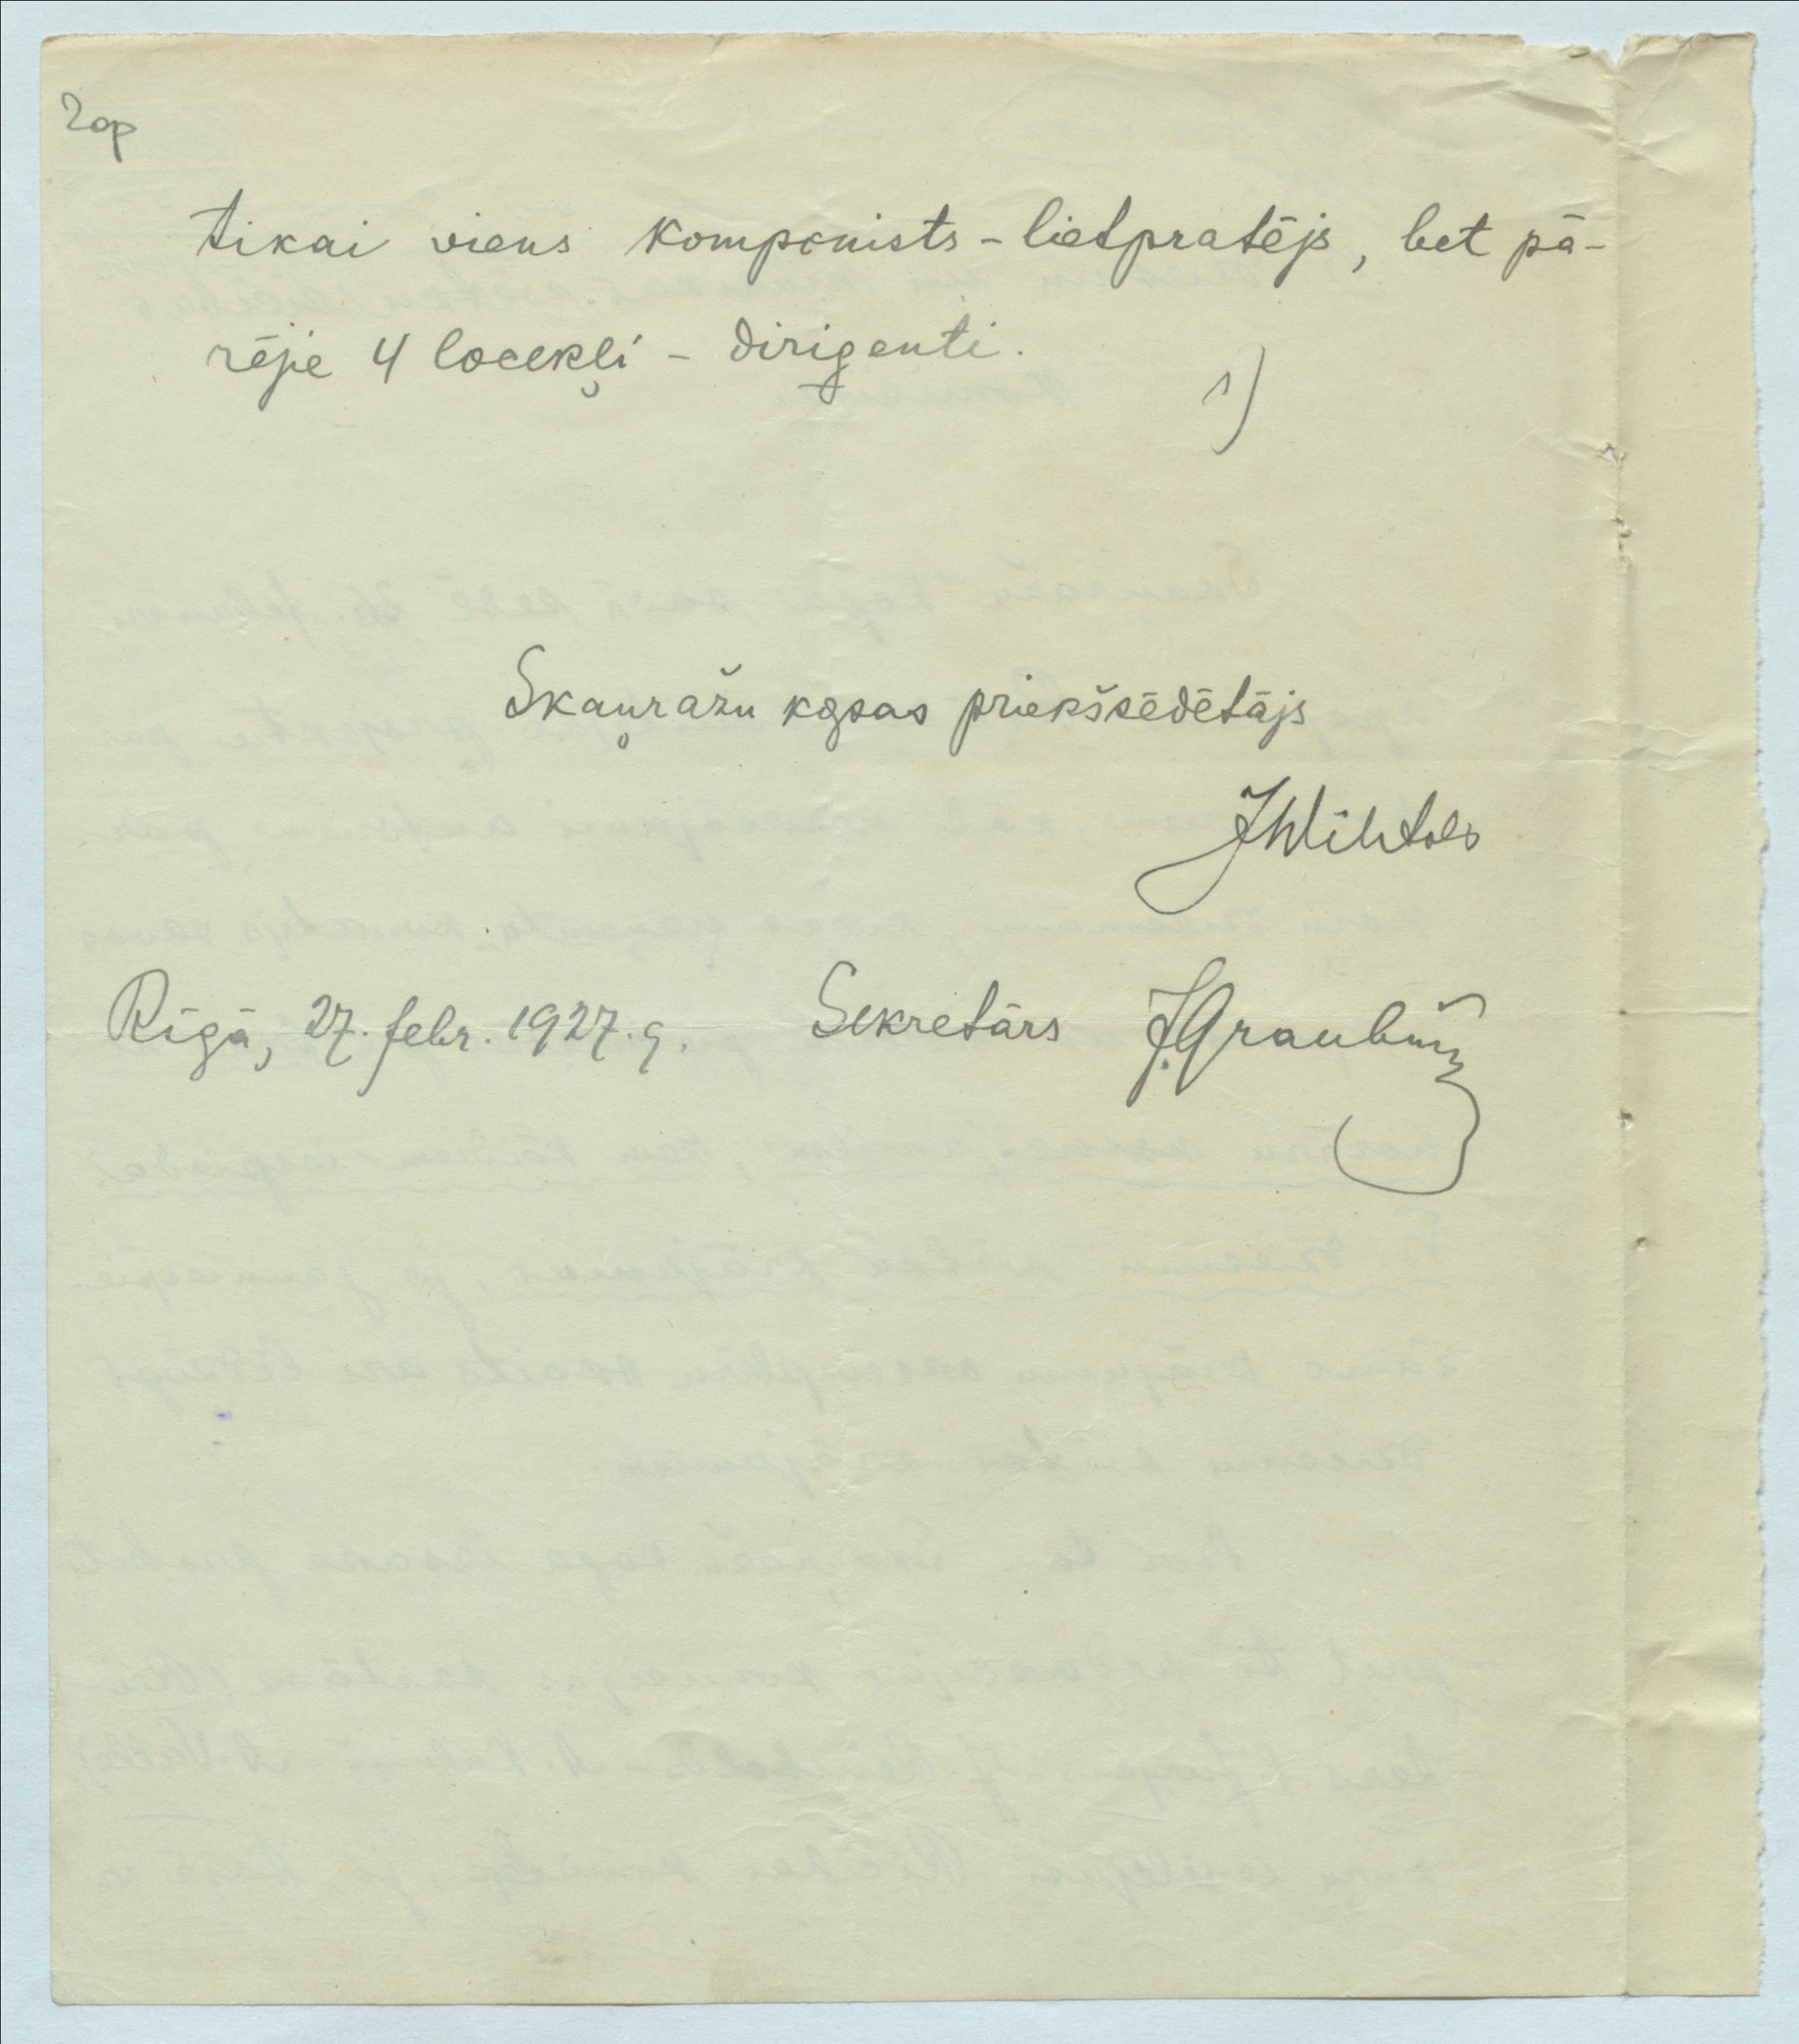 2op
tikai viens komponists - lietpratējs, bet pā-
rējie 4 locekļi - diriģenti.
1)
Skaņražu kopas priekšsēdētājs
JWihtols
Rīgā, 27. febr. 1927. g. Sekretārs J.Graubiņ